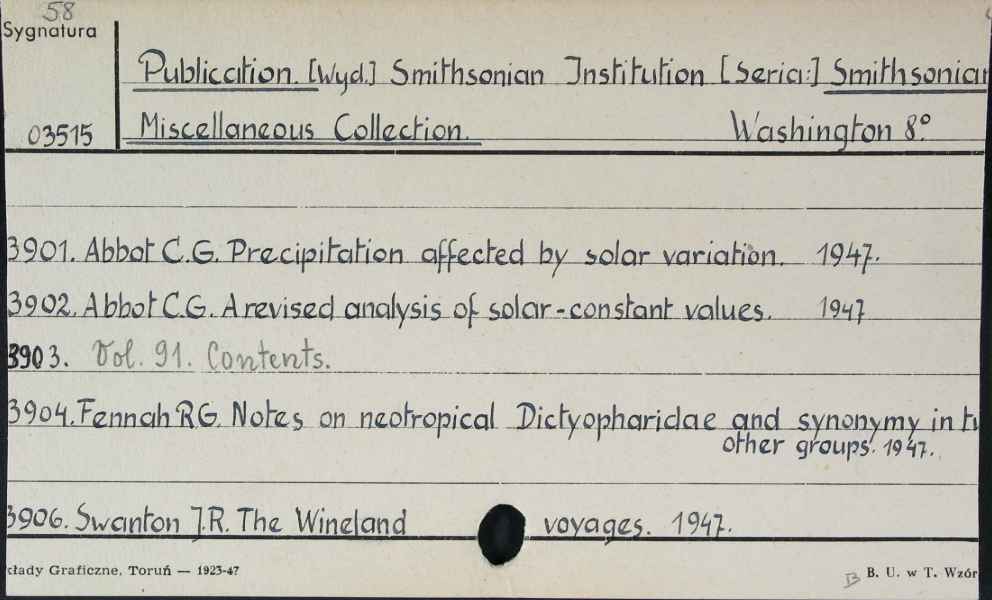 58
Sygnatura
Publication. [Wyd.] Smithsonian Institution [Seria:] Smithsonian
03515 Miscellaneous Collection. Washington 8°
3901. Abbot C.G. Precipitation affected by solar variation. 1947.
3902. Abbot C.G. A revised analysis of solar-constant values. 1947
3903. Vol. 91. Contents.
3904. Fennah RG. Notes on neotropical Dictyopharidae and synonymy in
other groups. 1947.
3906. Swanton J.R. The Wineland voyages. 1947.
kłady Graficzne, Toruń — 1923-47 B B. U. w T. Wzór